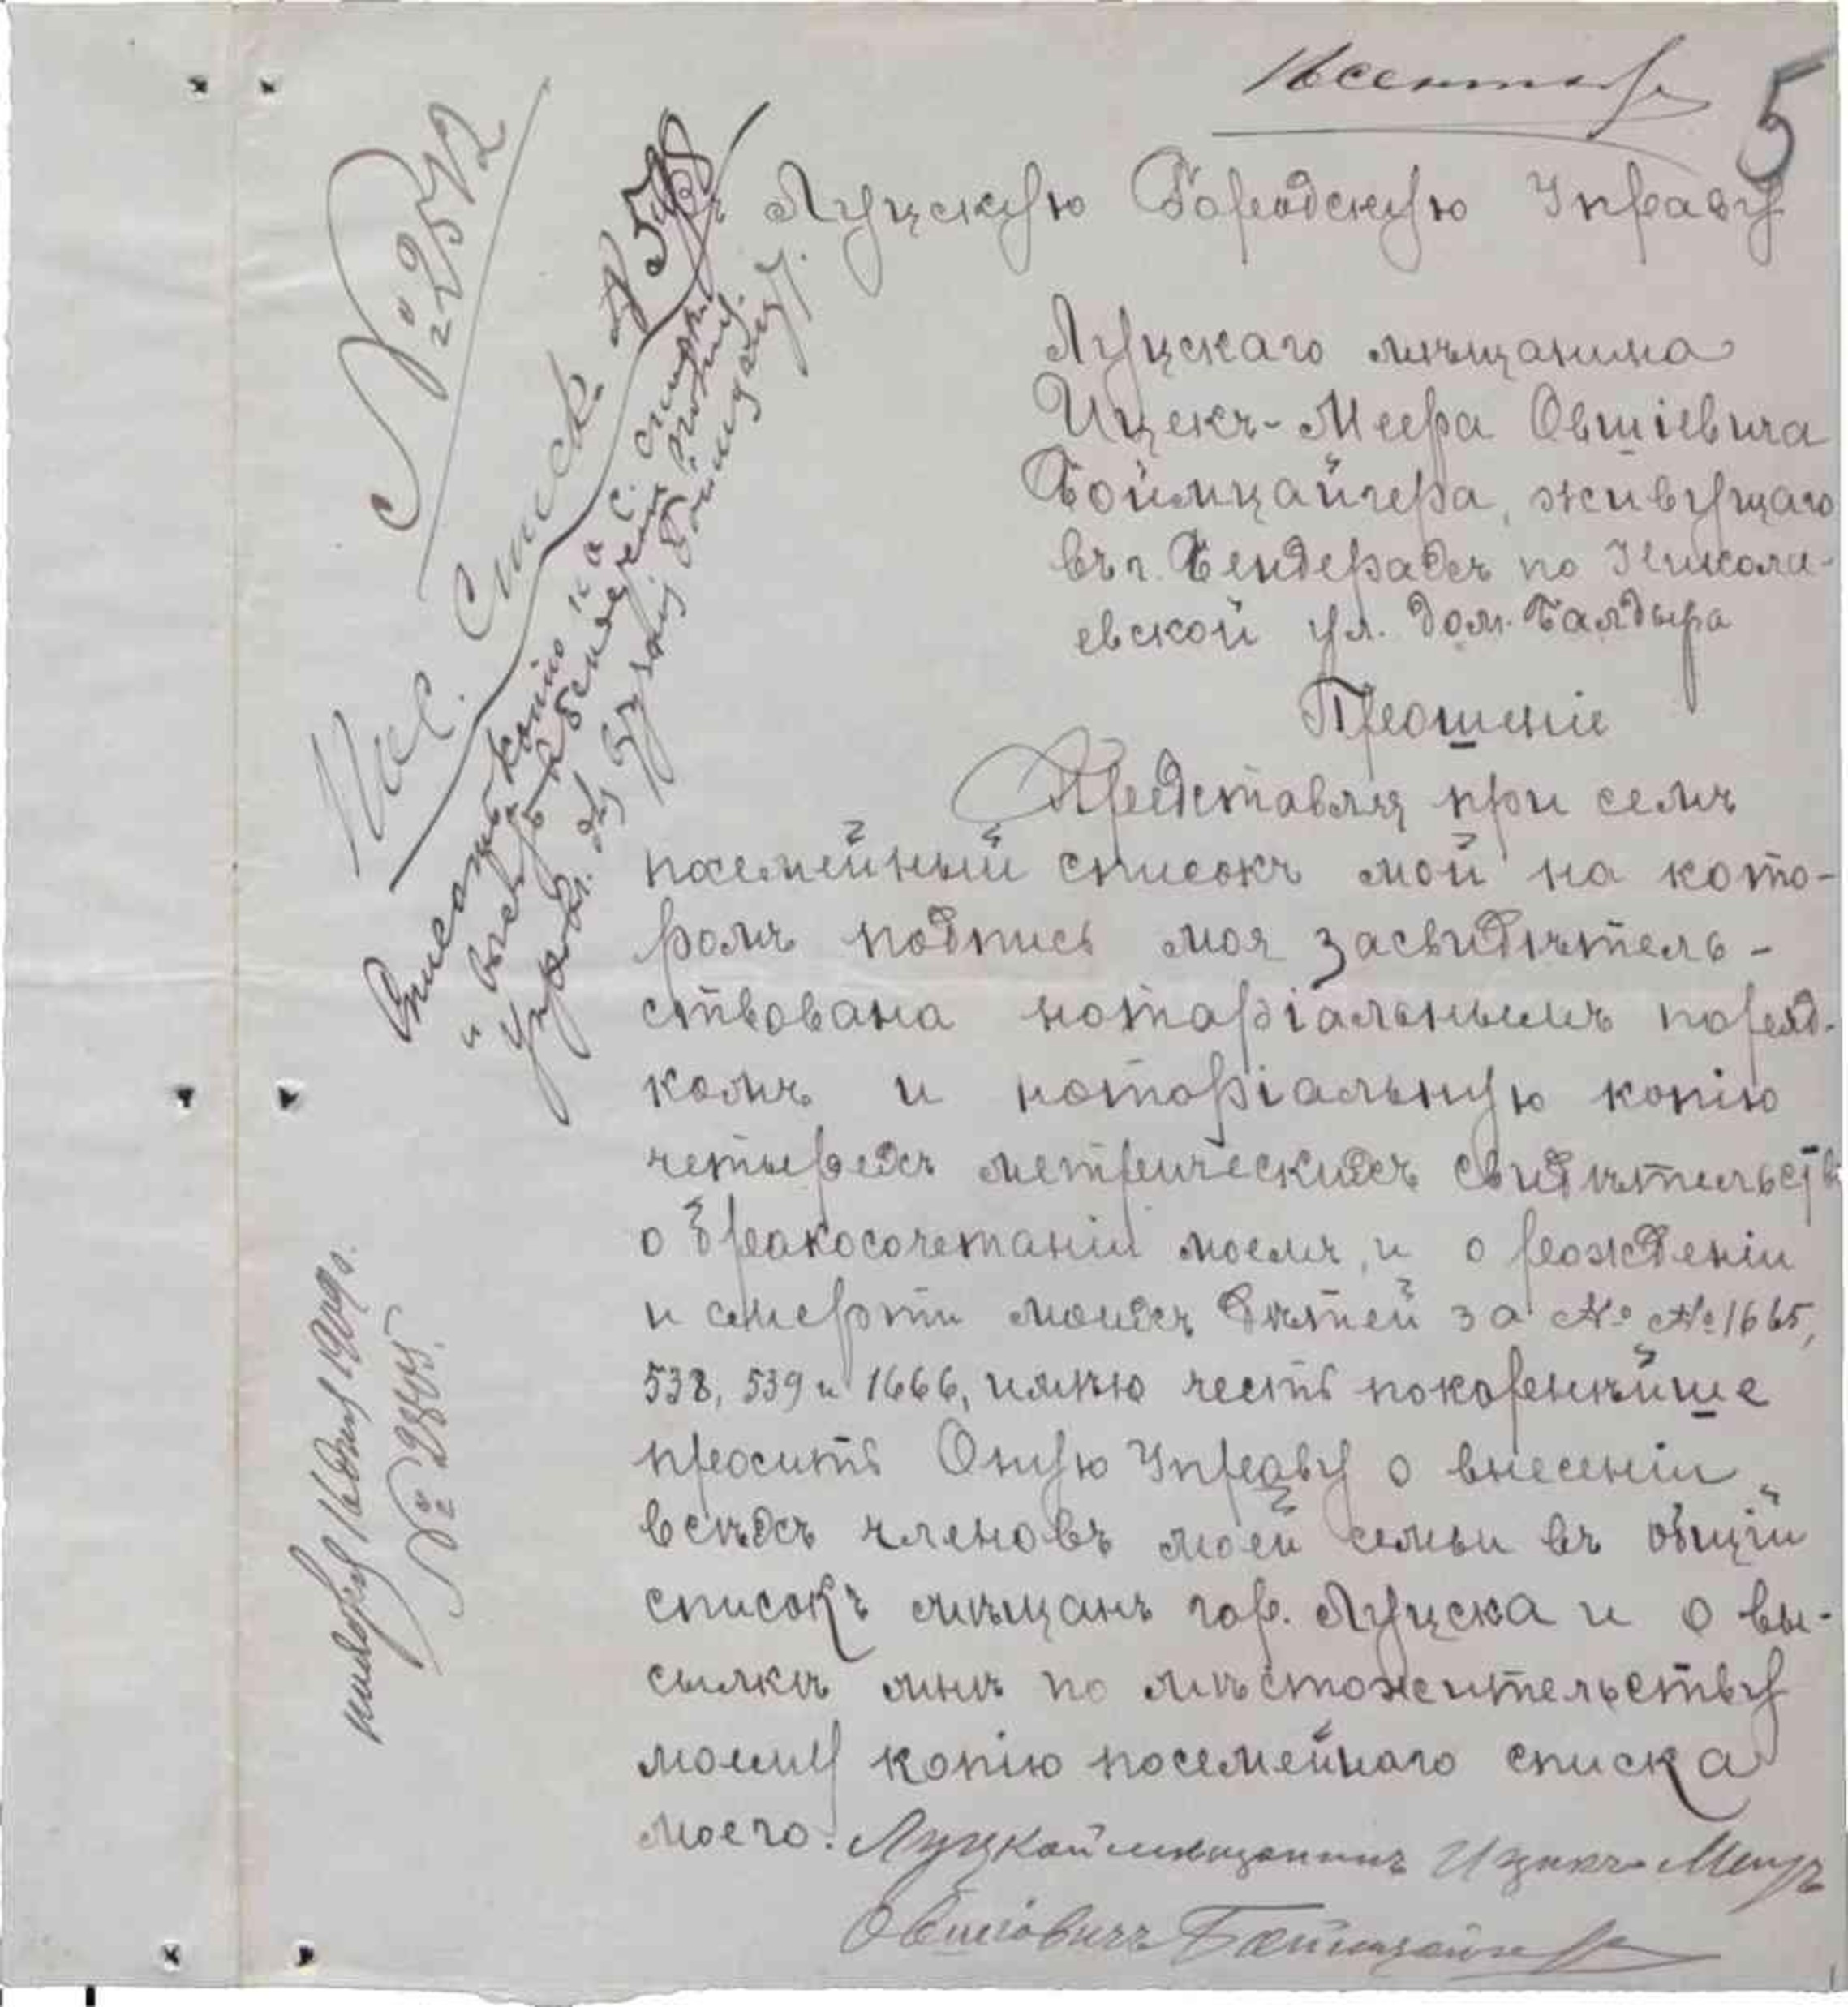 16 сентября
5
Въ Луцкую Городскую Управу
Луцкаго мѣщанина
Ицекъ-Меера Овшіевича
Боймцайгера, живущаго
въ г. Бендерахъ по Никола-
евской ул. дом. Балдыра
Прошеніе
Представляя при семъ
посемейный списокъ мой на кото-
ромъ подпись моя засвидѣтель-
ствована нотаріальнымъ поряд-
комъ и нотаріальную копію
четырехъ метрическихъ свидѣтельствъ
о бракосочетаніи моемъ, и о рожденіи
и смерти моихъ дѣтей за №№ 1665,
538, 539 и 1666, имѣю честь покорнѣйше
просить Оную Управу о внесеніи
всѣхъ членовъ моей семьи въ общій
списокъ мѣщанъ гор. Луцска и о вы-
сылкѣ мнѣ по мѣстожительству
моему копію посемейнаго списка
моего. Луцкой мещанинъ Ицикъ Меиръ
Овшіовичъ Баймцайгер
№ 2572
Пос. Списк. № 548
Списать копію пос. списк.
и выслать въ Бендерск.
Управ.
№ 2845.